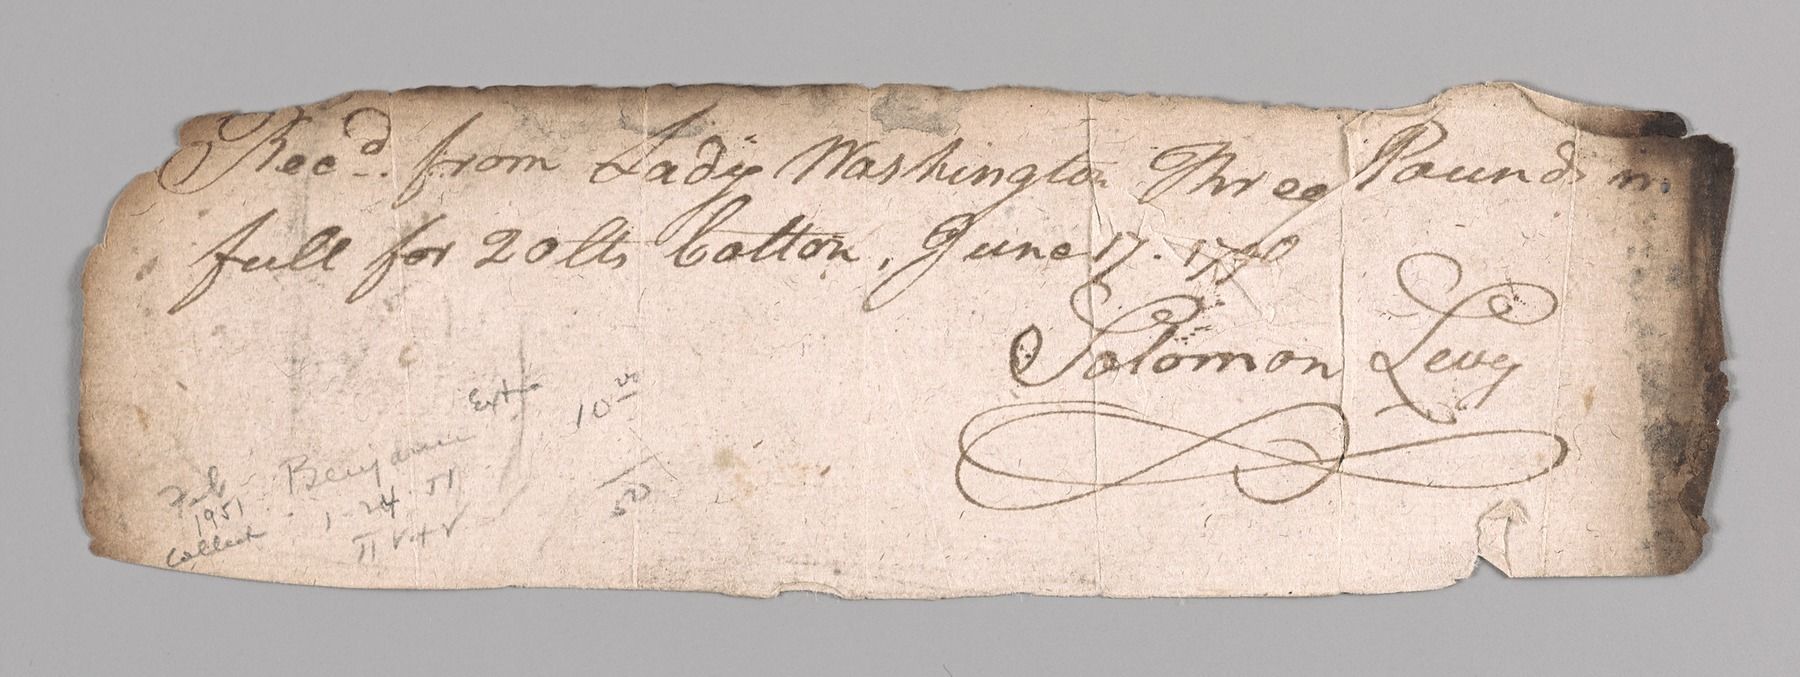 Recd. from Lady Washington Three Pounds in
full for 20 lbs Cotton, June 17. 1790
Solomon Levy
Extra
10 00
50
Feb
1951
Collect
Benjamin
1-24-51